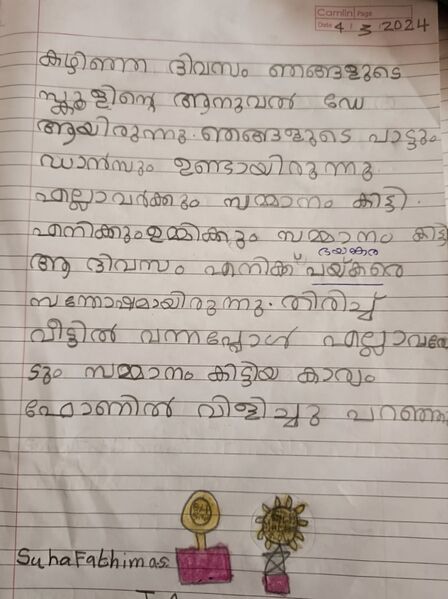 Camlin Page
Date 4 / 3 / 2024
കഴിഞ്ഞ ദിവസം ഞങ്ങളുടെ
സ്കൂളിന്റെ ആനുവൽ ഡേ
ആയിരുന്നു. ഞങ്ങളുടെ പാട്ടും
ഡാൻസും ഉണ്ടായിരുന്നു.
എല്ലാവർക്കും സമ്മാനം കിട്ടി.
എനിക്കും ഉമ്മിക്കും സമ്മാനം കിട്ടി
ഭയങ്കര
ആ ദിവസം എനിക്ക് പയ്കരെ
സന്തോഷമായിരുന്നു. തിരിച്ച്
വീട്ടിൽ വന്നപ്പോൾ എല്ലാവരോ
ടും സമ്മാനം കിട്ടിയ കാര്യം
ഫോണിൽ വിളിച്ചു പറഞ്ഞു
Suha Fathima s